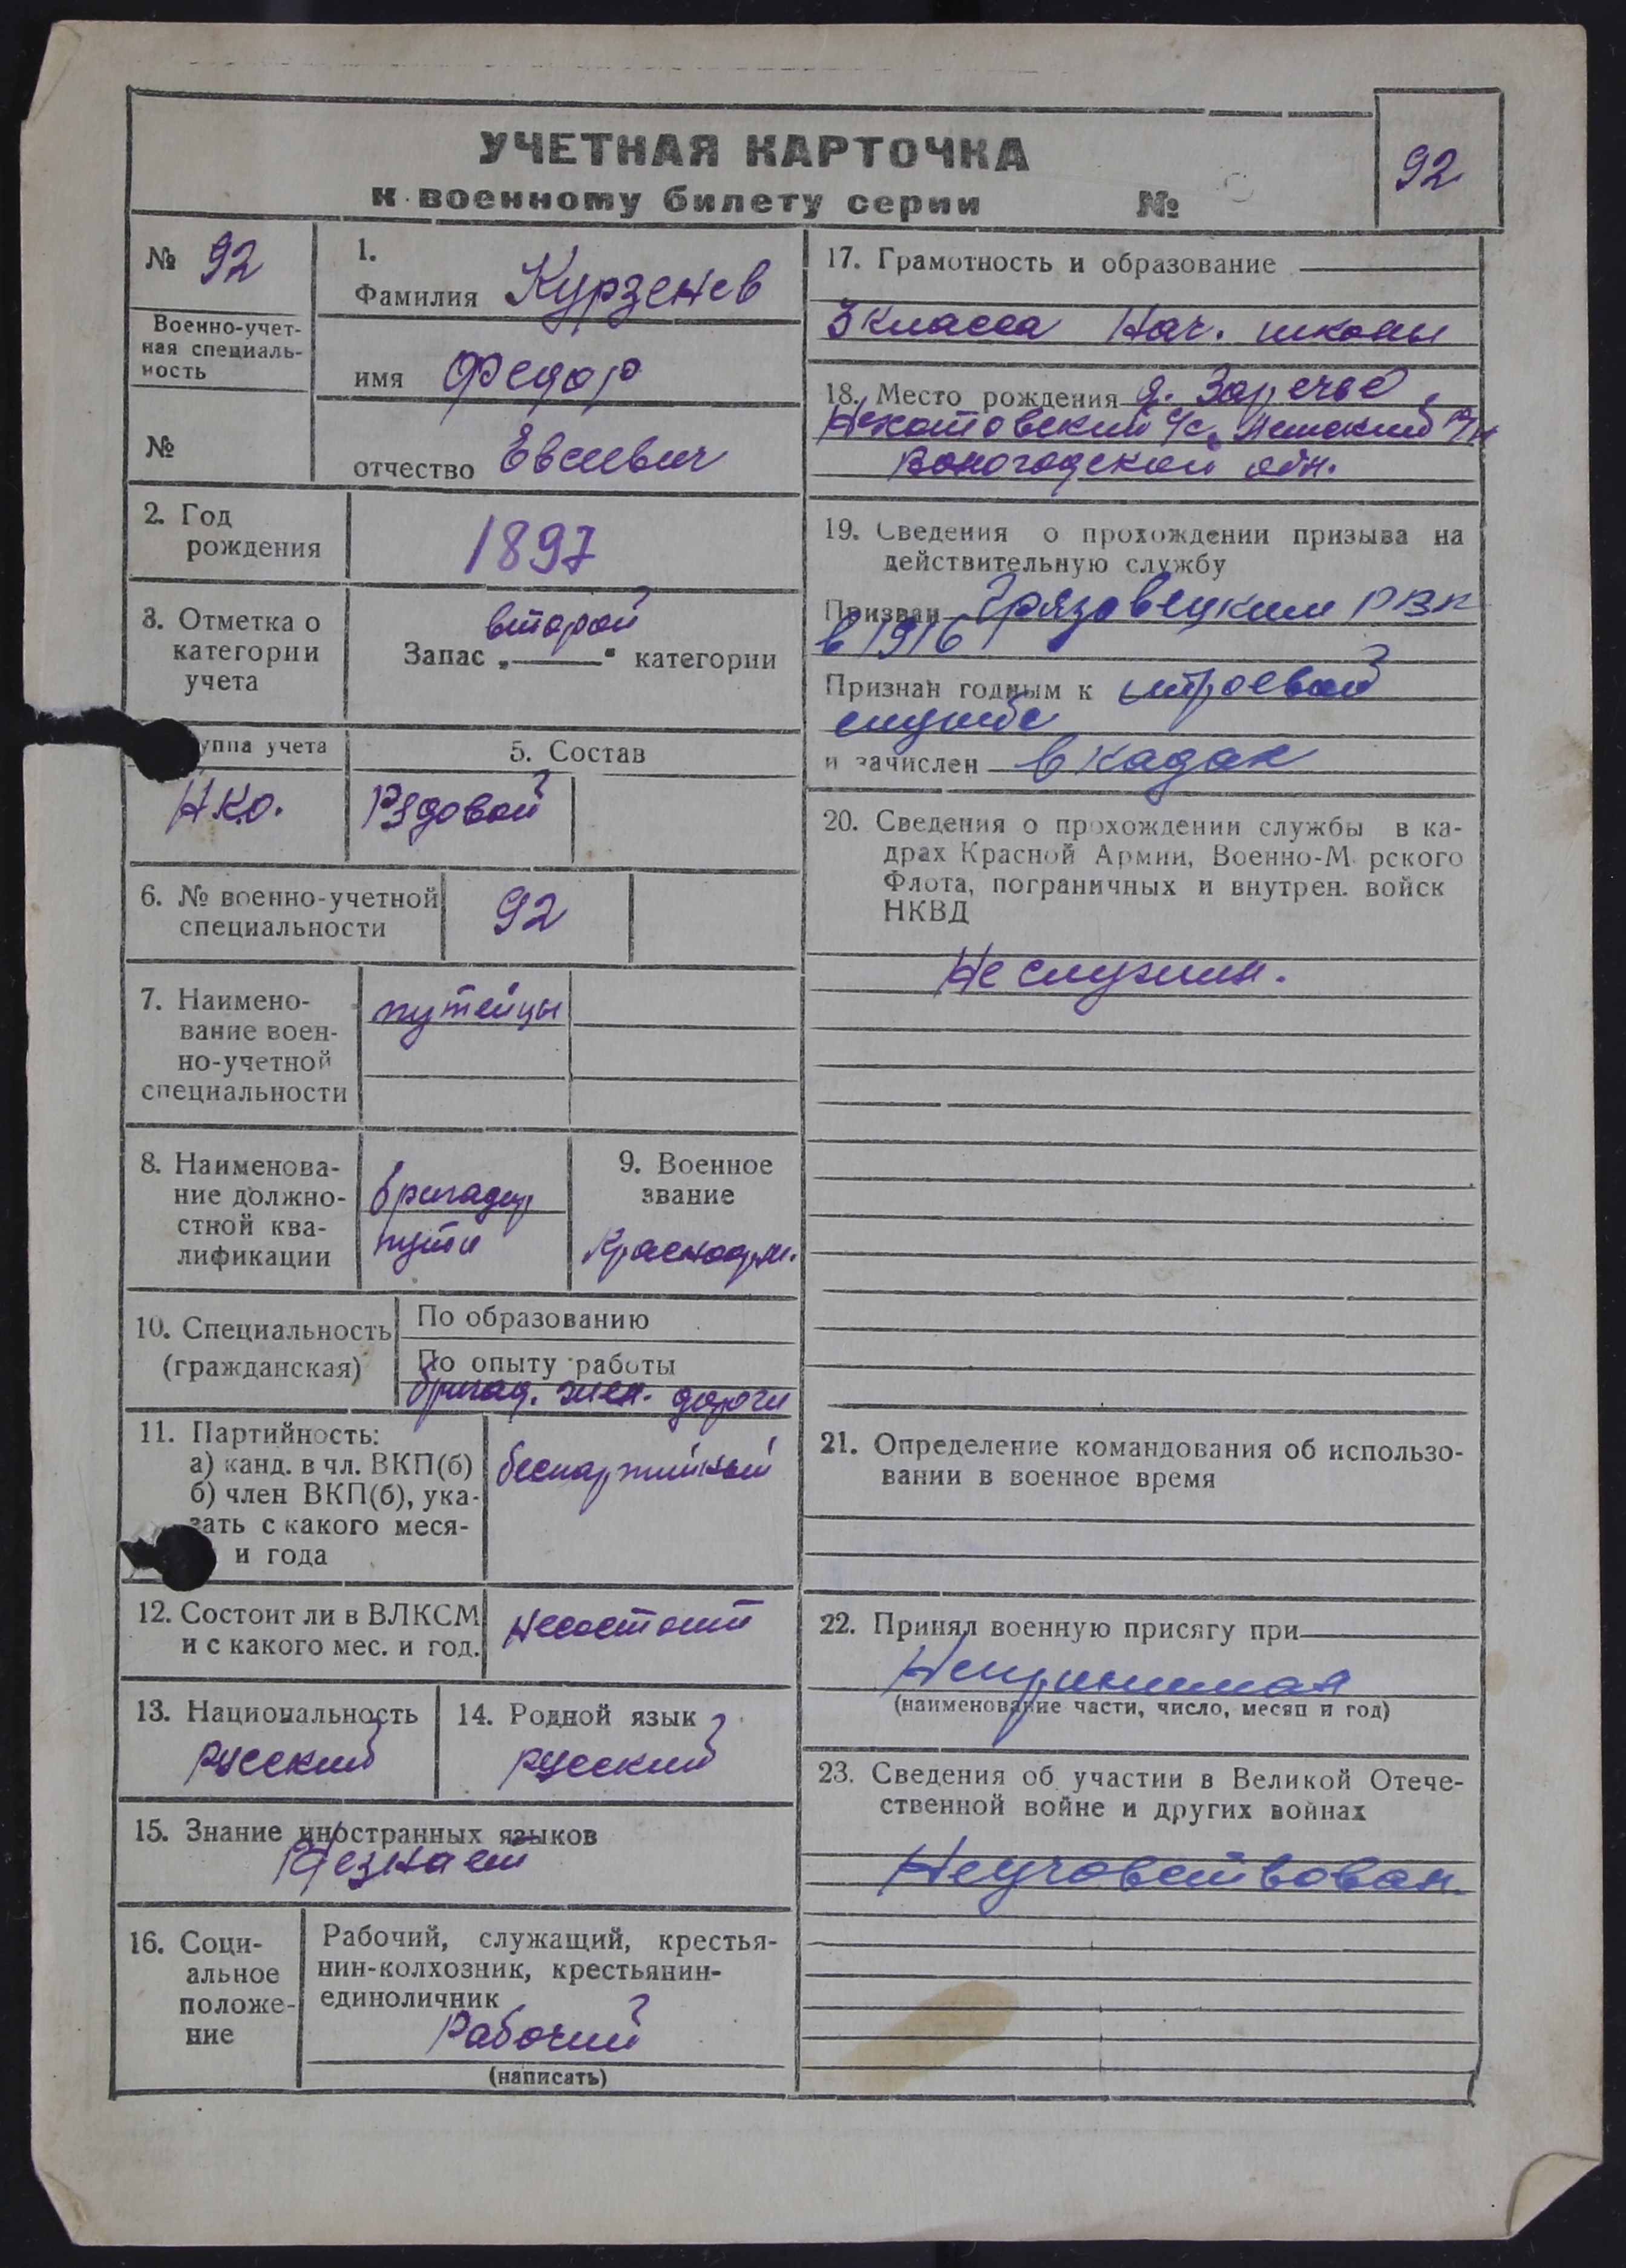 УЧЕТНАЯ КАРТОЧКА
к военному билету серии №
92
№ 92
Военно-учет-
ная специаль-
ность
№
1.
Фамилия Курзенев
имя Федор
отчество Евсеевич
2. Год
рождения
1897
3. Отметка о
категории
учета
второй
Запас „ “ категории
уппа учета
НКО.
5. Состав
Рядовой
6. № военно-учетной
специальности
92
7. Наимено-
вание воен-
но-учетной
специальности
путейцы
8. Наименова-
ние должно-
стной ква-
лификации
бригадир
пути
9. Военное
звание
Красноарм.
10. Специальность
(гражданская)
По образованию
По опыту работы
бригад. жел. дороги
11. Партийность:
а) канд. в чл. ВКП(б)
б) член ВКП(б), ука-
зать с какого меся-
и года
беспартийный
12. Состоит ли в ВЛКСМ
и с какого мес. и год.
Несостоит
13. Национальность
русский
14. Родной язык
русский
15. Знание иностранных языков
Незнает
16. Соци-
альное
положе-
ние
Рабочий, служащий, крестья-
нин-колхозник, крестьянин-
единоличник
Рабочий
(написать)
17. Грамотность и образование
3 класса Нач. школы
18. Место рождения д. Заречье,
с/с,
Вологодской обл.
19. Сведения о прохождении призыва на
действительную службу
Призван Грязовецким РВК
в 1916
Признан годным к строевой
службе
и зачислен в
20. Сведения о прохождении службы в ка-
драх Красной Армии, Военно-М рского
Флота, пограничных и внутрен. войск
НКВД
Не служил.
21. Определение командования об использо-
вании в военное время
22. Принял военную присягу при
Непринимал
(наименование части, число, месяц и год)
23. Сведения об участии в Великой Отече-
ственной войне и других войнах
Неучавствовал.